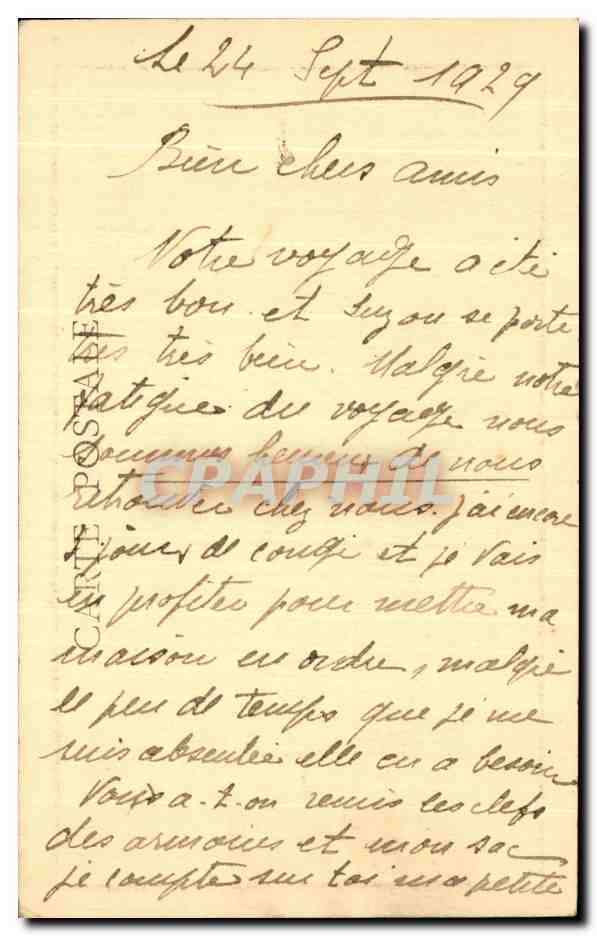 Le 24 Sept 1929
Bien chers amis
Notre voyage a été
très bon et Suzon se porte
très très bien. Malgré notre
fatigue du voyage nous
sommes heureux de nous
retrouver chez nous. j'ai encore
jours de congé et je vais
en profiter pour mettre ma
maison en ordre, malgré
le peu de temps que je me
suis absentée elle en a besoin
Vous a-t-on remis les clefs
des armoires et mon sac
je compte sur toi ma petite
CARTE POSTALE
CPAPHIL